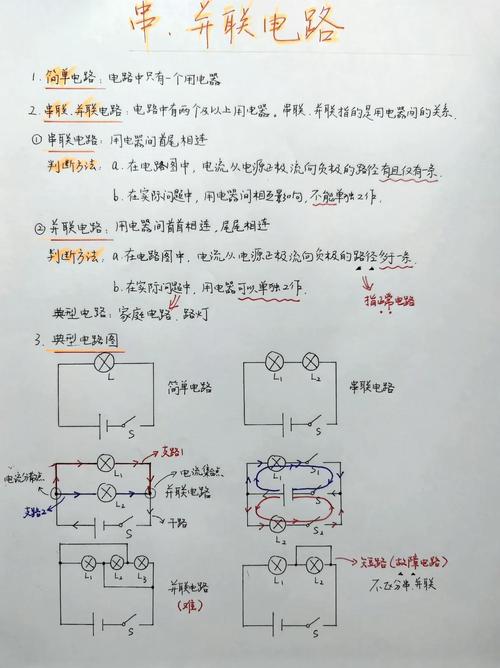 串、并联电路
1. 简单电路：电路中只有一个用电器
2. 串联、并联电路：电路中有两个及以上用电器。串联、并联指的是用电器间的关系.
① 串联电路：用电器间首尾相连
判断方法：a. 在电路图中，电流从电源正极流向负极的路径有且仅有一条.
b. 在实际问题中，用电器间相互影响，不能单独工作.
② 并联电路：用电器间首首相连，尾尾相连
判断方法：a. 在电路图中，电流从电源正极流向负极的路径多于一条.
b. 在实际问题中，用电器可以单独工作.
指正常电路
典型电路：家庭电路、路灯
3. 典型电路图
L
简单电路
S
L₁ L₂
串联电路
S
L₁
支路1
电流分散点
L₂
电流集合点
并联电路
支路2
S
干路
L₁ S₁
S
L₂ S₂
L₁ L₂ L₃
并联电路
(难)
S
L₁ L₂
短路(故障电路)
不区分串、并联
S